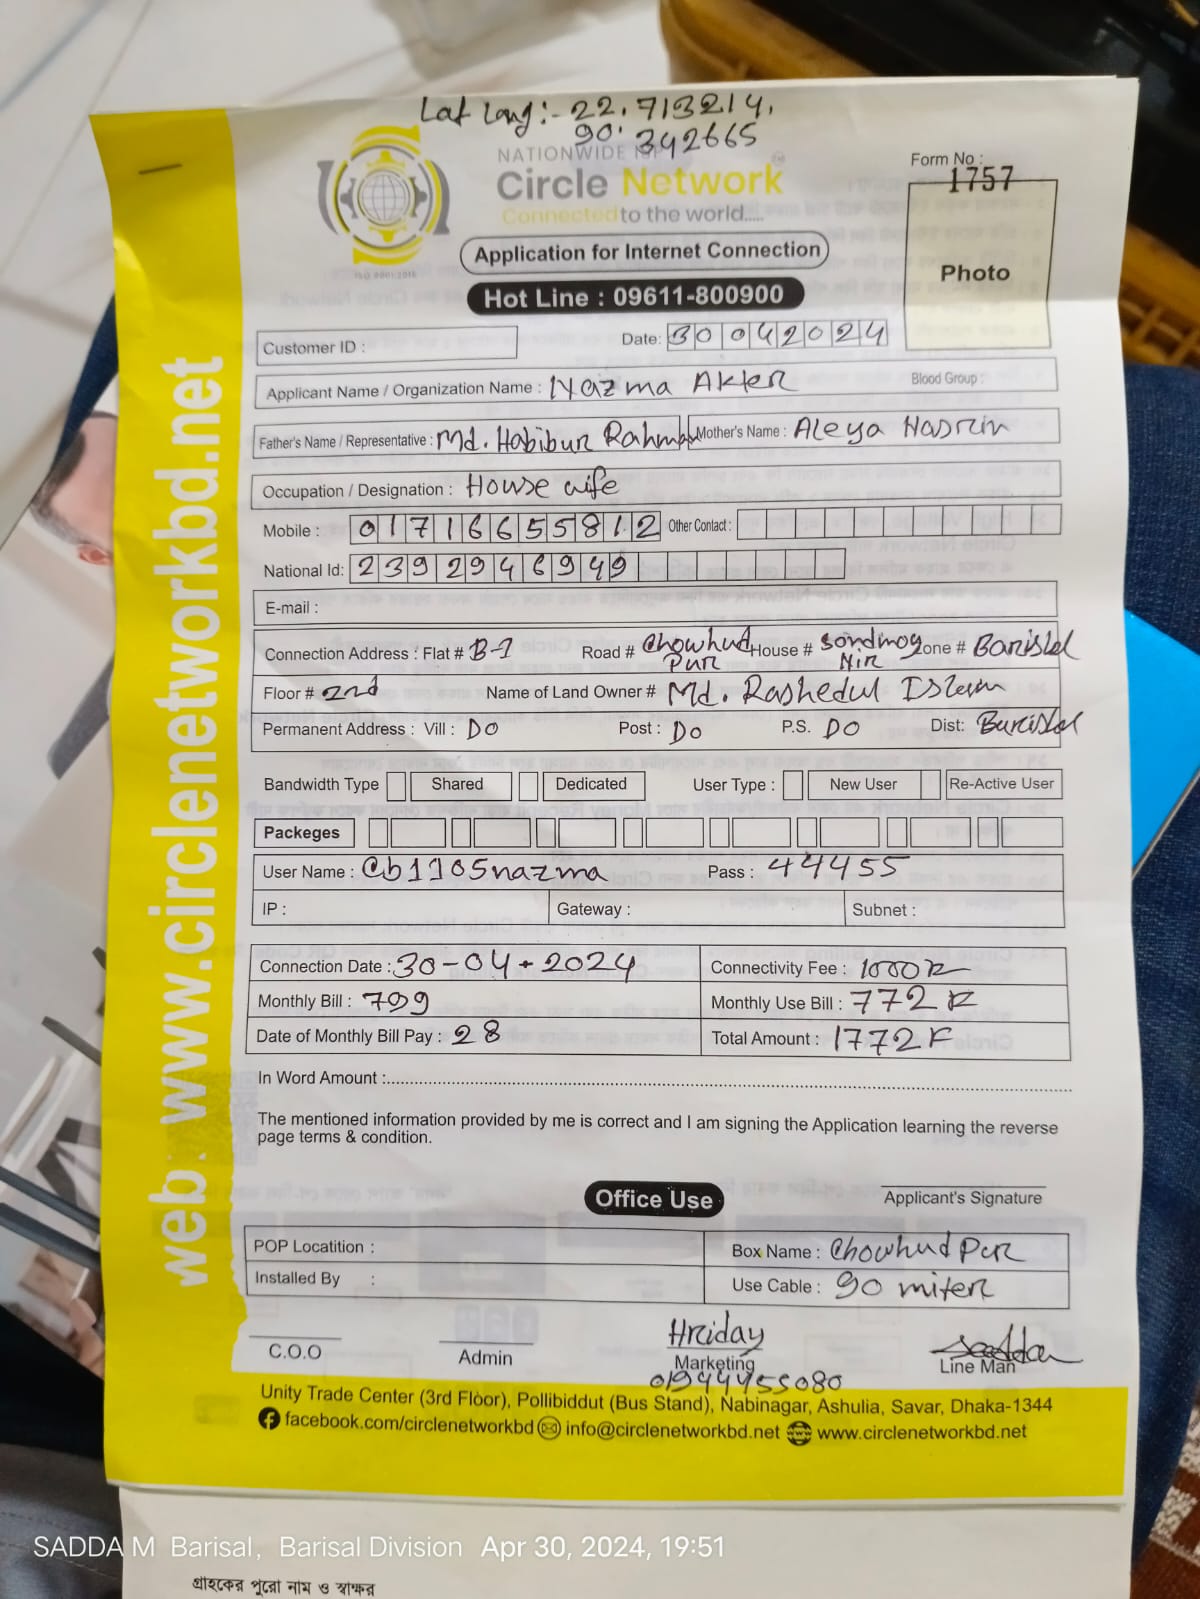 Lat Long:- 22.713214,
90.342665
NATIONWIDE ISP
Circle Network
Connected to the world.....
ISO 9001:2015
Form No :
1757
Photo
Application for Internet Connection
Hot Line : 09611-800900
Customer ID :
Date: 30042024
Applicant Name / Organization Name : Nazma Akter
Blood Group :
Father's Name / Representative : Md. Habibur Rahman Mother's Name : Aleya Nasrin
Occupation / Designation : House wife
Mobile : 01716655812 Other Contact :
National Id: 2392946949
E-mail :
Connection Address : Flat # B-1 Road # Chowhud Pur House # Zone # Barishal
Floor # 2nd Name of Land Owner # Md. Rashedul Islam
Permanent Address : Vill : DO Post : DO P.S. DO Dist: Barishal
Bandwidth Type Shared Dedicated User Type : New User Re-Active User
Packeges
User Name : @b1105nazma Pass : 44455
IP : Gateway : Subnet :
Connection Date : 30-04-2024 Connectivity Fee : 1000
Monthly Bill : 799 Monthly Use Bill : 772
Date of Monthly Bill Pay : 28 Total Amount : 1772
In Word Amount :
The mentioned information provided by me is correct and I am signing the Application learning the reverse
page terms & condition.
Applicant's Signature
Office Use
POP Locatition : Box Name : Chowhud Pur
Installed By : Use Cable : 90 miter
Hriday
C.O.O Admin Marketing Line Man
01944455080
Unity Trade Center (3rd Floor), Pollibiddut (Bus Stand), Nabinagar, Ashulia, Savar, Dhaka-1344
facebook.com/circlenetworkbd info@circlenetworkbd.net www.circlenetworkbd.net
web : www.circlenetworkbd.net
SADDA M Barisal, Barisal Division Apr 30, 2024, 19:51
গ্রাহকের পুরো নাম ও স্বাক্ষর